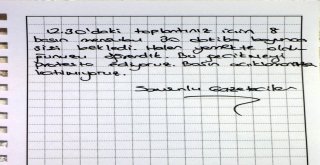 12.30'daki toplantınız için 8
basın mensubu 30 dakika boyunca
sizi bekledi. Halen yemekte olduğu
nuzu öğrendik. Bu gecikmeyi
protesto ediyoruz. Basın açıklamanıza
katılmıyoruz.
Sorumlu Gazeteciler